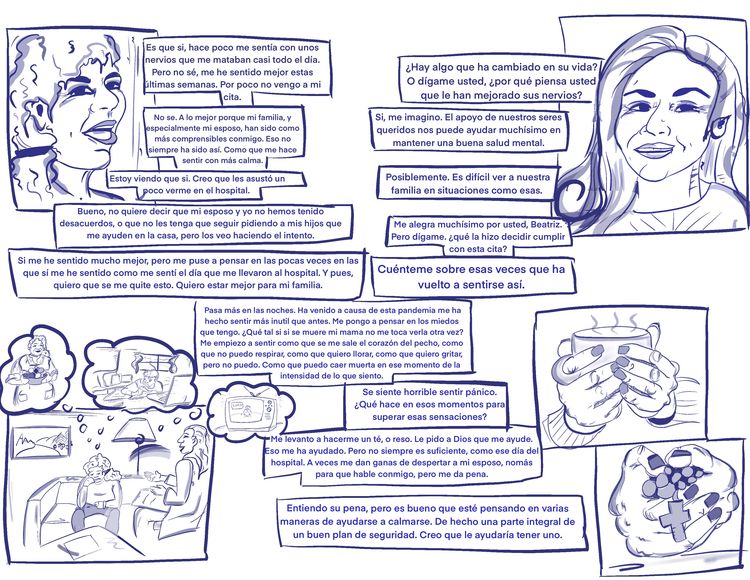 Es que si, hace poco me sentía con unos
nervios que me mataban casi todo el día.
Pero no sé, me he sentido mejor estas
últimas semanas. Por poco no vengo a mi
cita.
¿Hay algo que ha cambiado en su vida?
O dígame usted, ¿por qué piensa usted
que le han mejorado sus nervios?
No se. A lo mejor porque mi familia, y
especialmente mi esposo, han sido como
más comprensibles conmigo. Eso no
siempre ha sido así. Como que me hace
sentir con más calma.
Si, me imagino. El apoyo de nuestros seres
queridos nos puede ayudar muchísimo en
mantener una buena salud mental.
Estoy viendo que si. Creo que les asustó un
poco verme en el hospital.
Posiblemente. Es difícil ver a nuestra
familia en situaciones como esas.
Bueno, no quiere decir que mi esposo y yo no hemos tenido
desacuerdos, o que no les tenga que seguir pidiendo a mis hijos que
me ayuden en la casa, pero los veo haciendo el intento.
Me alegra muchísimo por usted, Beatriz.
Pero dígame. ¿qué la hizo decidir cumplir
con esta cita?
Si me he sentido mucho mejor, pero me puse a pensar en las pocas veces en las
que sí me he sentido como me sentí el día que me llevaron al hospital. Y pues,
quiero que se me quite esto. Quiero estar mejor para mi familia.
Cuénteme sobre esas veces que ha
vuelto a sentirse así.
Pasa más en las noches. Ha venido a causa de esta pandemia me ha
hecho sentir más inutil que antes. Me pongo a pensar en los miedos
que tengo. ¿Qué tal si si se muere mi mama no me toca verla otra vez?
Me empiezo a sentir como que se me sale el corazón del pecho, como
que no puedo respirar, como que quiero llorar, como que quiero gritar,
pero no puedo. Como que puedo caer muerta en ese momento de la
intensidad de lo que siento.
Se siente horrible sentir pánico.
¿Qué hace en esos momentos para
superar esas sensaciones?
Me levanto a hacerme un té, o reso. Le pido a Dios que me ayude.
Eso me ha ayudado. Pero no siempre es suficiente, como ese día del
hospital. A veces me dan ganas de despertar a mi esposo, nomás
para que hable conmigo, pero me da pena.
Entiendo su pena, pero es bueno que esté pensando en varias
maneras de ayudarse a calmarse. De hecho una parte integral de
un buen plan de seguridad. Creo que le ayudaría tener uno.